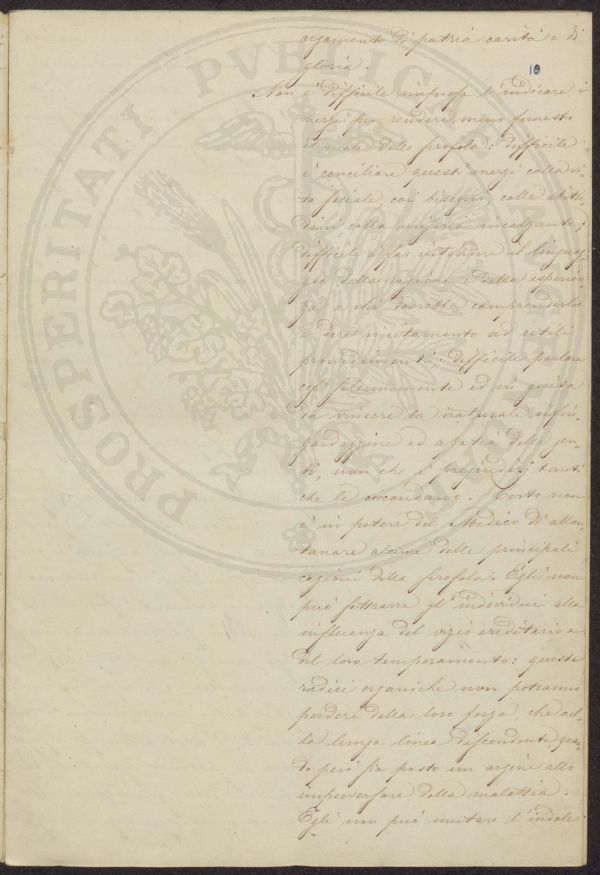 argomento di patria carità e di
gloria.
10
Non è difficile impresa l'indicare i
mezzi per rendere meno funesto
il male della scrofola: difficile
è conciliare questi mezzi colla vi-
ta sociale, coi bisogni, colle abitu-
dini colla miseria incalzante;
difficile è far intendere il linguag-
gio della ragione e della esperien-
za a chi dovrebbe comprenderlo
e dare incitamento ad utili
provvedimenti: difficile parlare
così solennemente ed in guisa
da vincere la naturale infin-
gardaggine ed apatia delle gen-
ti, non che i pregiudizj tanti
che le circondano. Certo non
è in potere del Medico di allon-
tanare alcune delle principali
cagioni della scrofola. Egli non
può sottrarre gl'individui alla
influenza del vizio ereditario e
del loro temperamento: queste
radici organiche non potranno
perdere della loro forza, che nel-
la lunga linea discendente quan-
do però sia posto un argine allo
imperversare della malattia.
Egli non può mutare l'indole
PROSPERITATI PVBLICAE